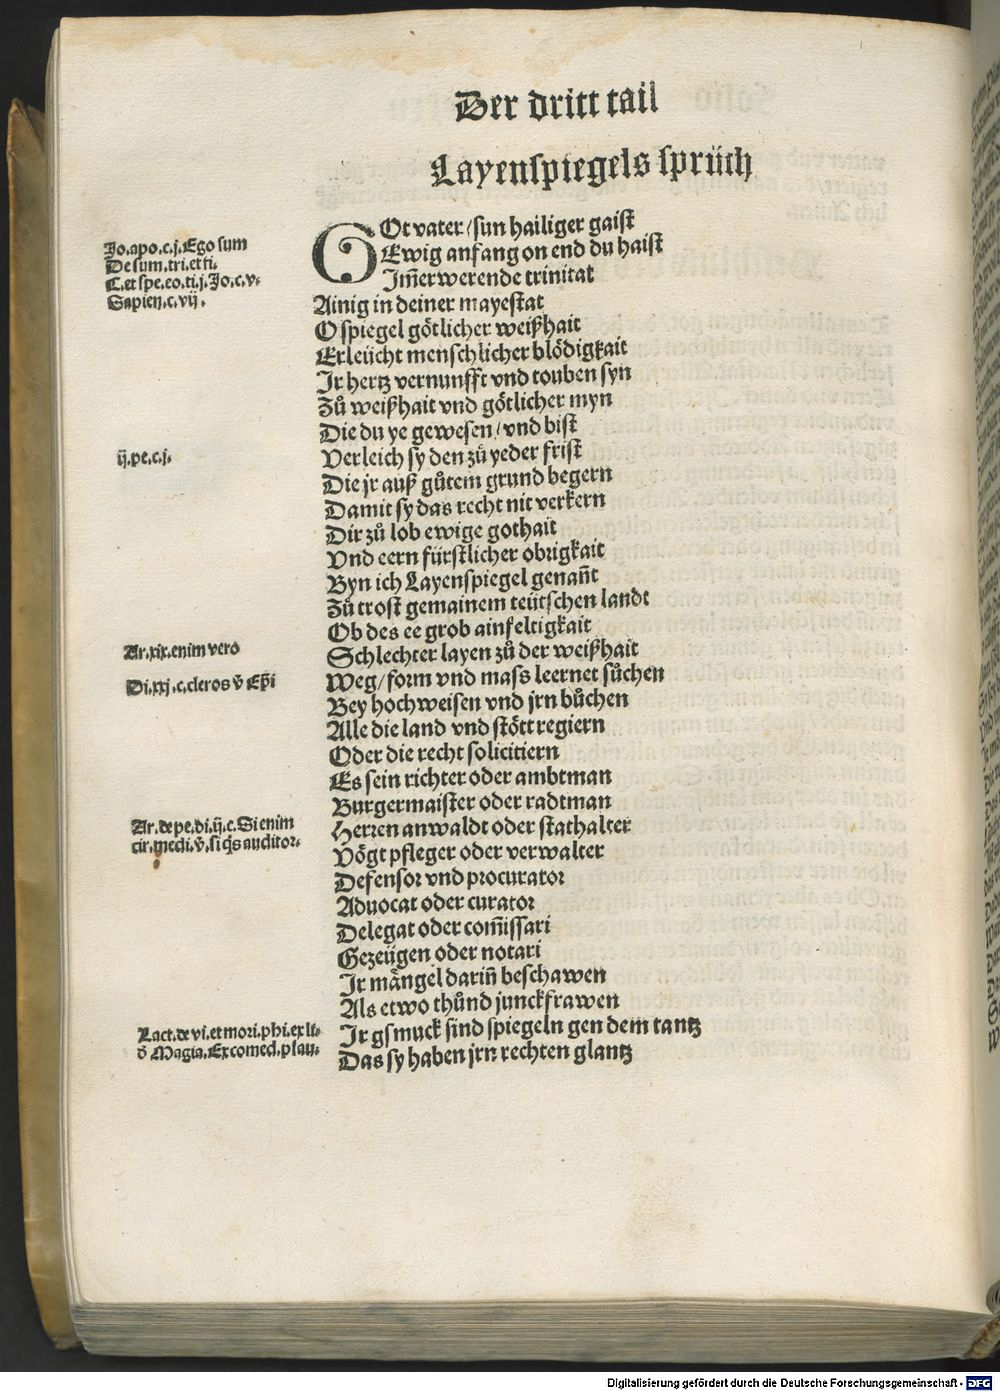 Der dritt tail
Layenspiegels sprüch
GOt vater / sun hailiger gaist
Ewig anfang on end du haist
Im̃erwerende trinitat
Ainig in deiner mayestat
O spiegel götlicher weißhait
Erleücht menschlicher blödigkait
Ir hertz vernunfft vnd touben syn
Zů weißhait vnd götlicher myn
Die du ye gewesen / vnd bist
Verleich sy den zů yeder frist
Die jr auß gůtem grund begern
Damit sy das recht nit verkern
Dir zů lob ewige gothait
Vnd eern fürstlicher obrigkait
Byn ich Layenspiegel genañt
Zů trost gemainem teütschen landt
Ob des ee grob ainfeltigkait
Schlechter layen zů der weißhait
Weg / form vnd mass leernet sůchen
Bey hochweisen vnd jrn bůchen
Alle die land vnd stött regiern
Oder die recht solicitiern
Es sein richter oder ambtman
Burgermaister oder radtman
Herren anwaldt oder stathalter
Vögt pfleger oder verwalter
Defensor vnd procurator
Aduocat oder curator
Delegat oder com̃issari
Gezeügen oder notari
Ir mängel dariñ beschawen
Als etwo thůnd junckfrawen
Ir gsmuck sind spiegeln gen dem tantz
Das sy haben jrn rechten glantz
Jo. apo. c. j. Ego sum
De sum. tri. et fi.
C. et spe. eo. ti. j. Jo. c. v.
Sapien. c. vij.
ij. pe. c. j.
Ar. xix. enim vero
Di. xxj. c. cleros v̄ Ep̄i
Ar. de pe. di. ij. c. Si enim
cir. medi. v̄. si q̄s auditor.
Lact. de vi. et mori. phi. ex li.
d̄ Magia. Ex comed. plau.
Digitalisierung gefördert durch die Deutsche Forschungsgemeinschaft - DFG